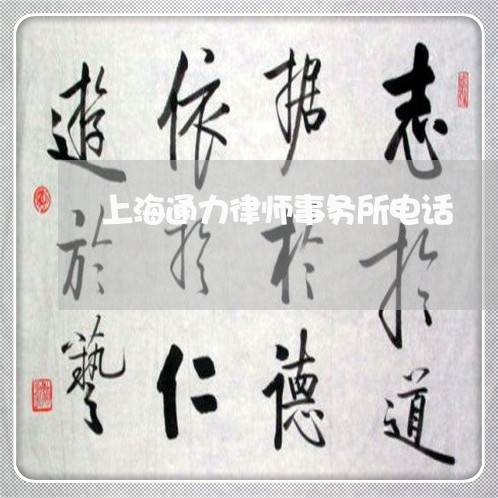 志於道
据於德
依於仁
遊於藝
上海通力律师事务所电话